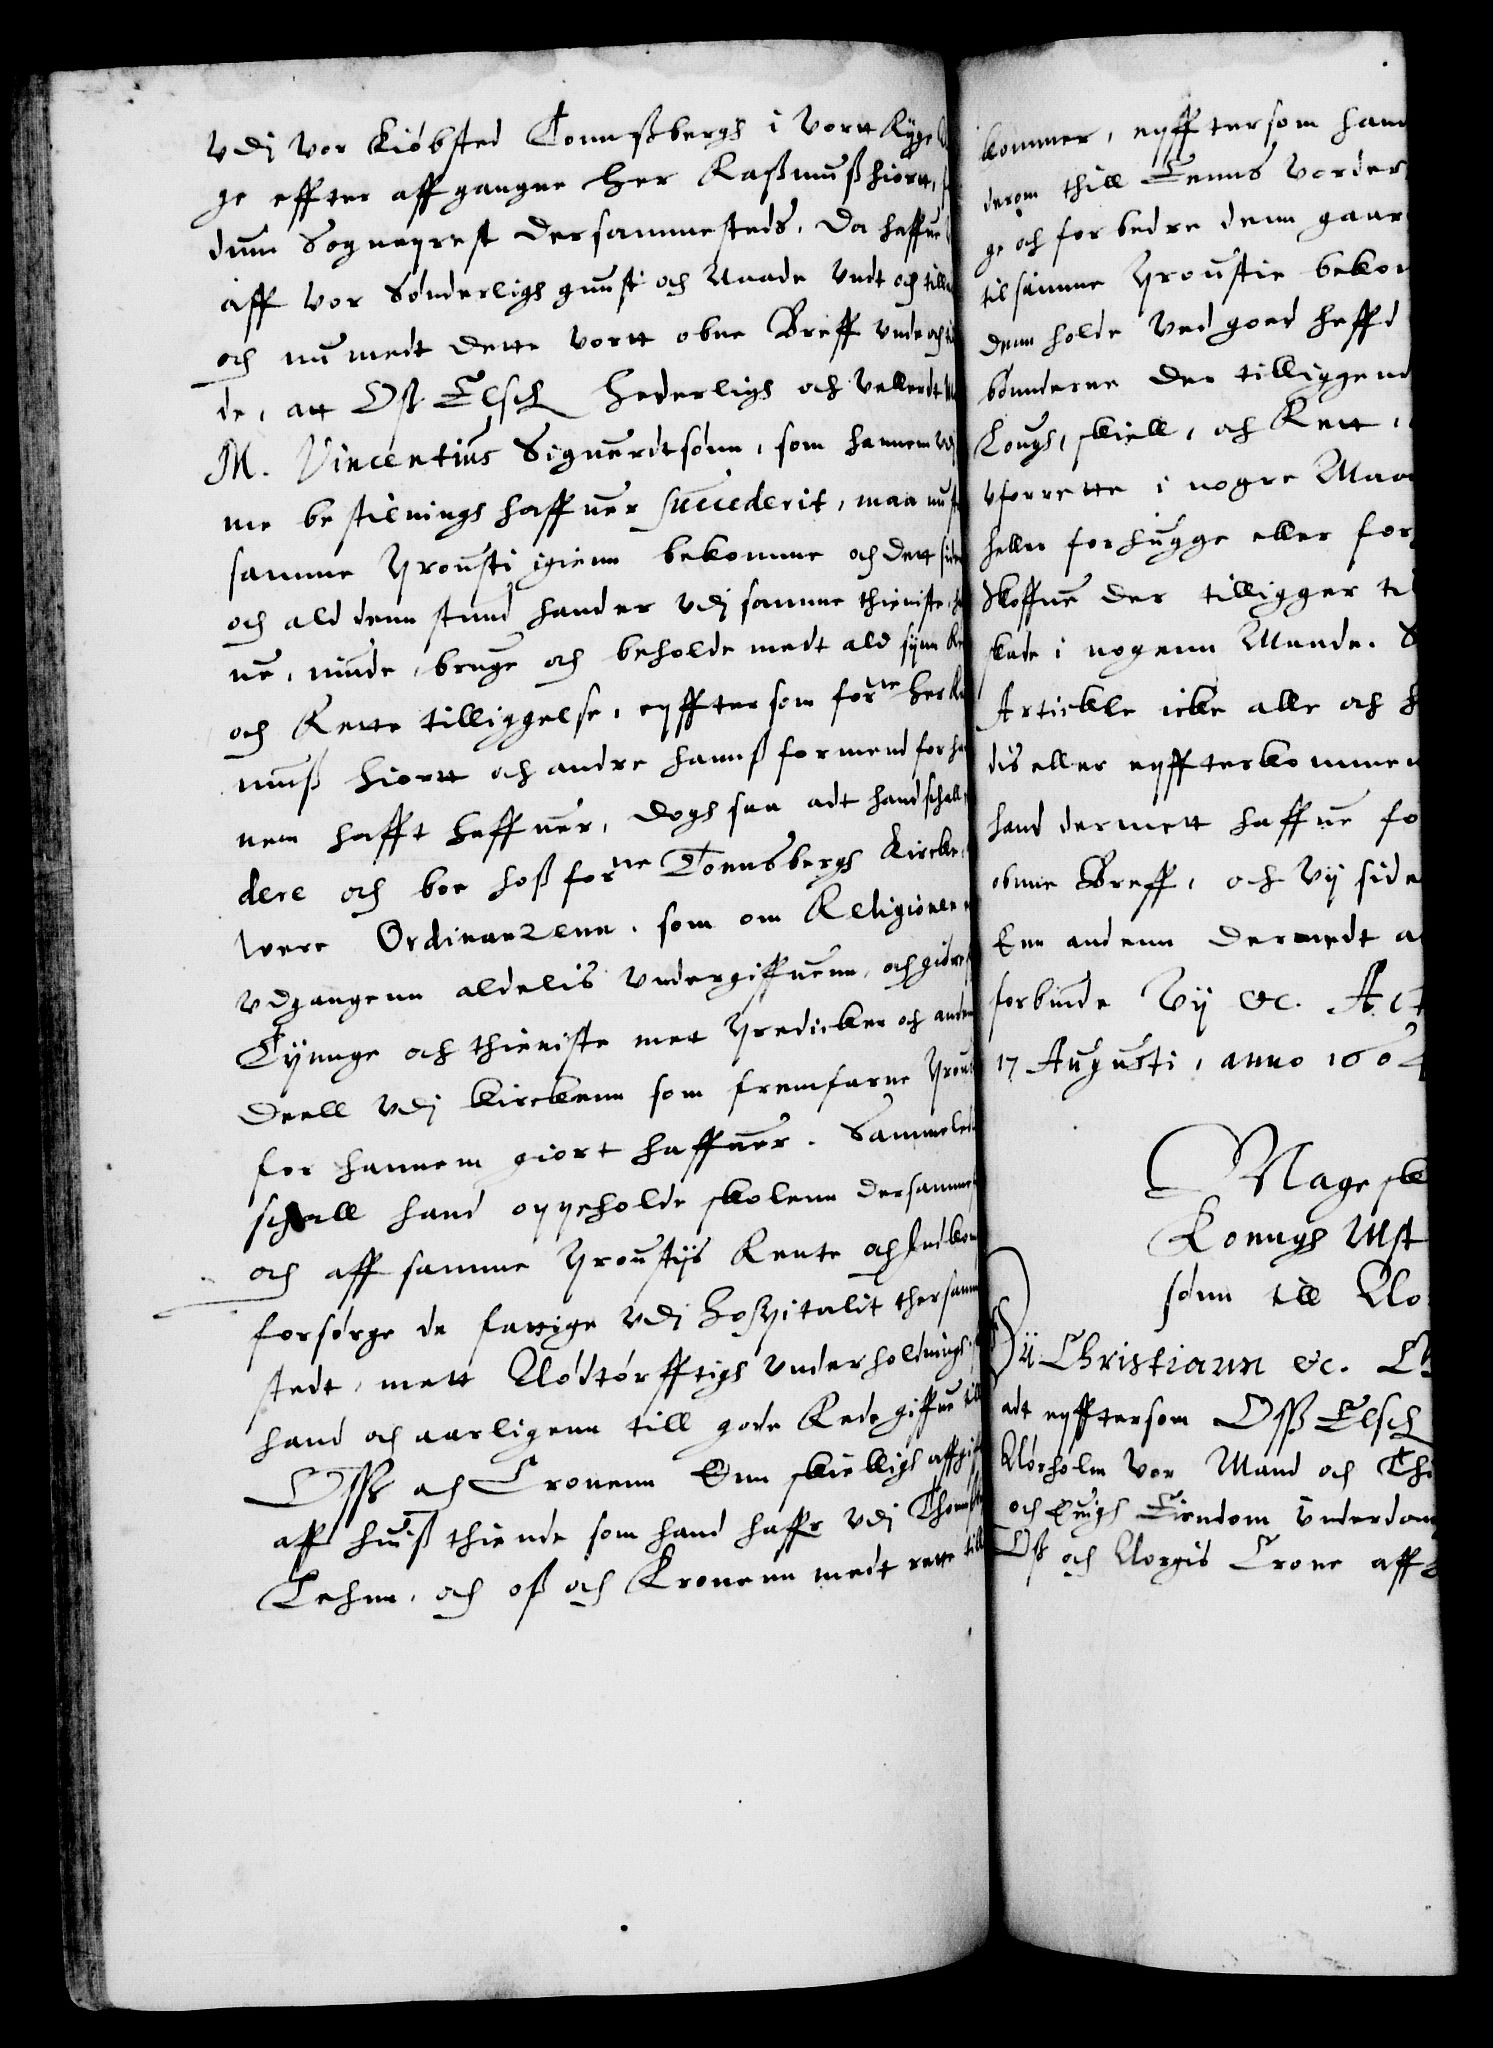 vdj vor Kiöbsted Tonnßbergh i vortt Rige
ge effter affgangne Her Raßmuß Hiortt,
dum Sogneprest dersammesteds. Da haffue
aff vor Sønderligh gunst och Naade undt och till
och nu medt dette vortt obne Breff unde och
de, att Oß Elsch Hederligh och vellerdt
M. Vincentius Siguerdtsønn, som hannem vdj
me bestilnings haffuer succederit, maa
samme Prousti igienn bekomme och dett siden
och ald denn stund hand er vdj samme thieniste,
ue, niude, bruge och beholde medt ald synn
och Rette tilliggelse, eyfftersom forne Her Ras
muß Hiortt och andre hannß formend for han
nem hafft haffuer, dogh saa adt hand schall
dere och boe hoß forne Tonnsbergh Kircke,
were Ordinanzenn, som om Religionen
vdgangenn aldelis undergiffuenn, och giøre
Tyunge och thieniste mett Predicken och anden
Deell vdj kirckenn som fremfarne Proust
for hannem giort haffuer. Sammeledis
schall hand oppeholde skolenn dersamme
och aff samme Proustijs Rente och Indkom
forsørge de fattige vdj Hospitalit thersamme
stedt, mett Nødtørfftigh underholdningh
hand och aarligenn till gode Rede giffue till
Oß och Cronenn Enn skielligh affgifft
aff huiß thiende som hand haffr vdj Thonsberg
Lehnn, och oß och Kronenn medt rette till
kommer, eyfftersom hand
derom thill Eenns vorder
ge och forbedre denn gaar
til samme Proustie bekom
denn holde ved goed heffd
bønderne der tilliggend
Lough, skiell, och Rett,
vforrette i nogre Maa
heller forhugge eller for
skoffue der tilligger til
skade i nogenn Maade. S
Artickle icke alle och h
dis eller eyffterkommen
hand dermett haffue fo
obnne Breff, och vij side
Enn andenn dermedt a
forbinde Vij &c. Act
17 Augusti, anno 1604
Mageskb
Konngh Mst
sønn till No
Vij Christiann &c.
adt eyfftersom Oß Elsch
Nørholm vor Mand och Thi
och Euigh Eiendom underdan
Oß och Norgis Crone aff